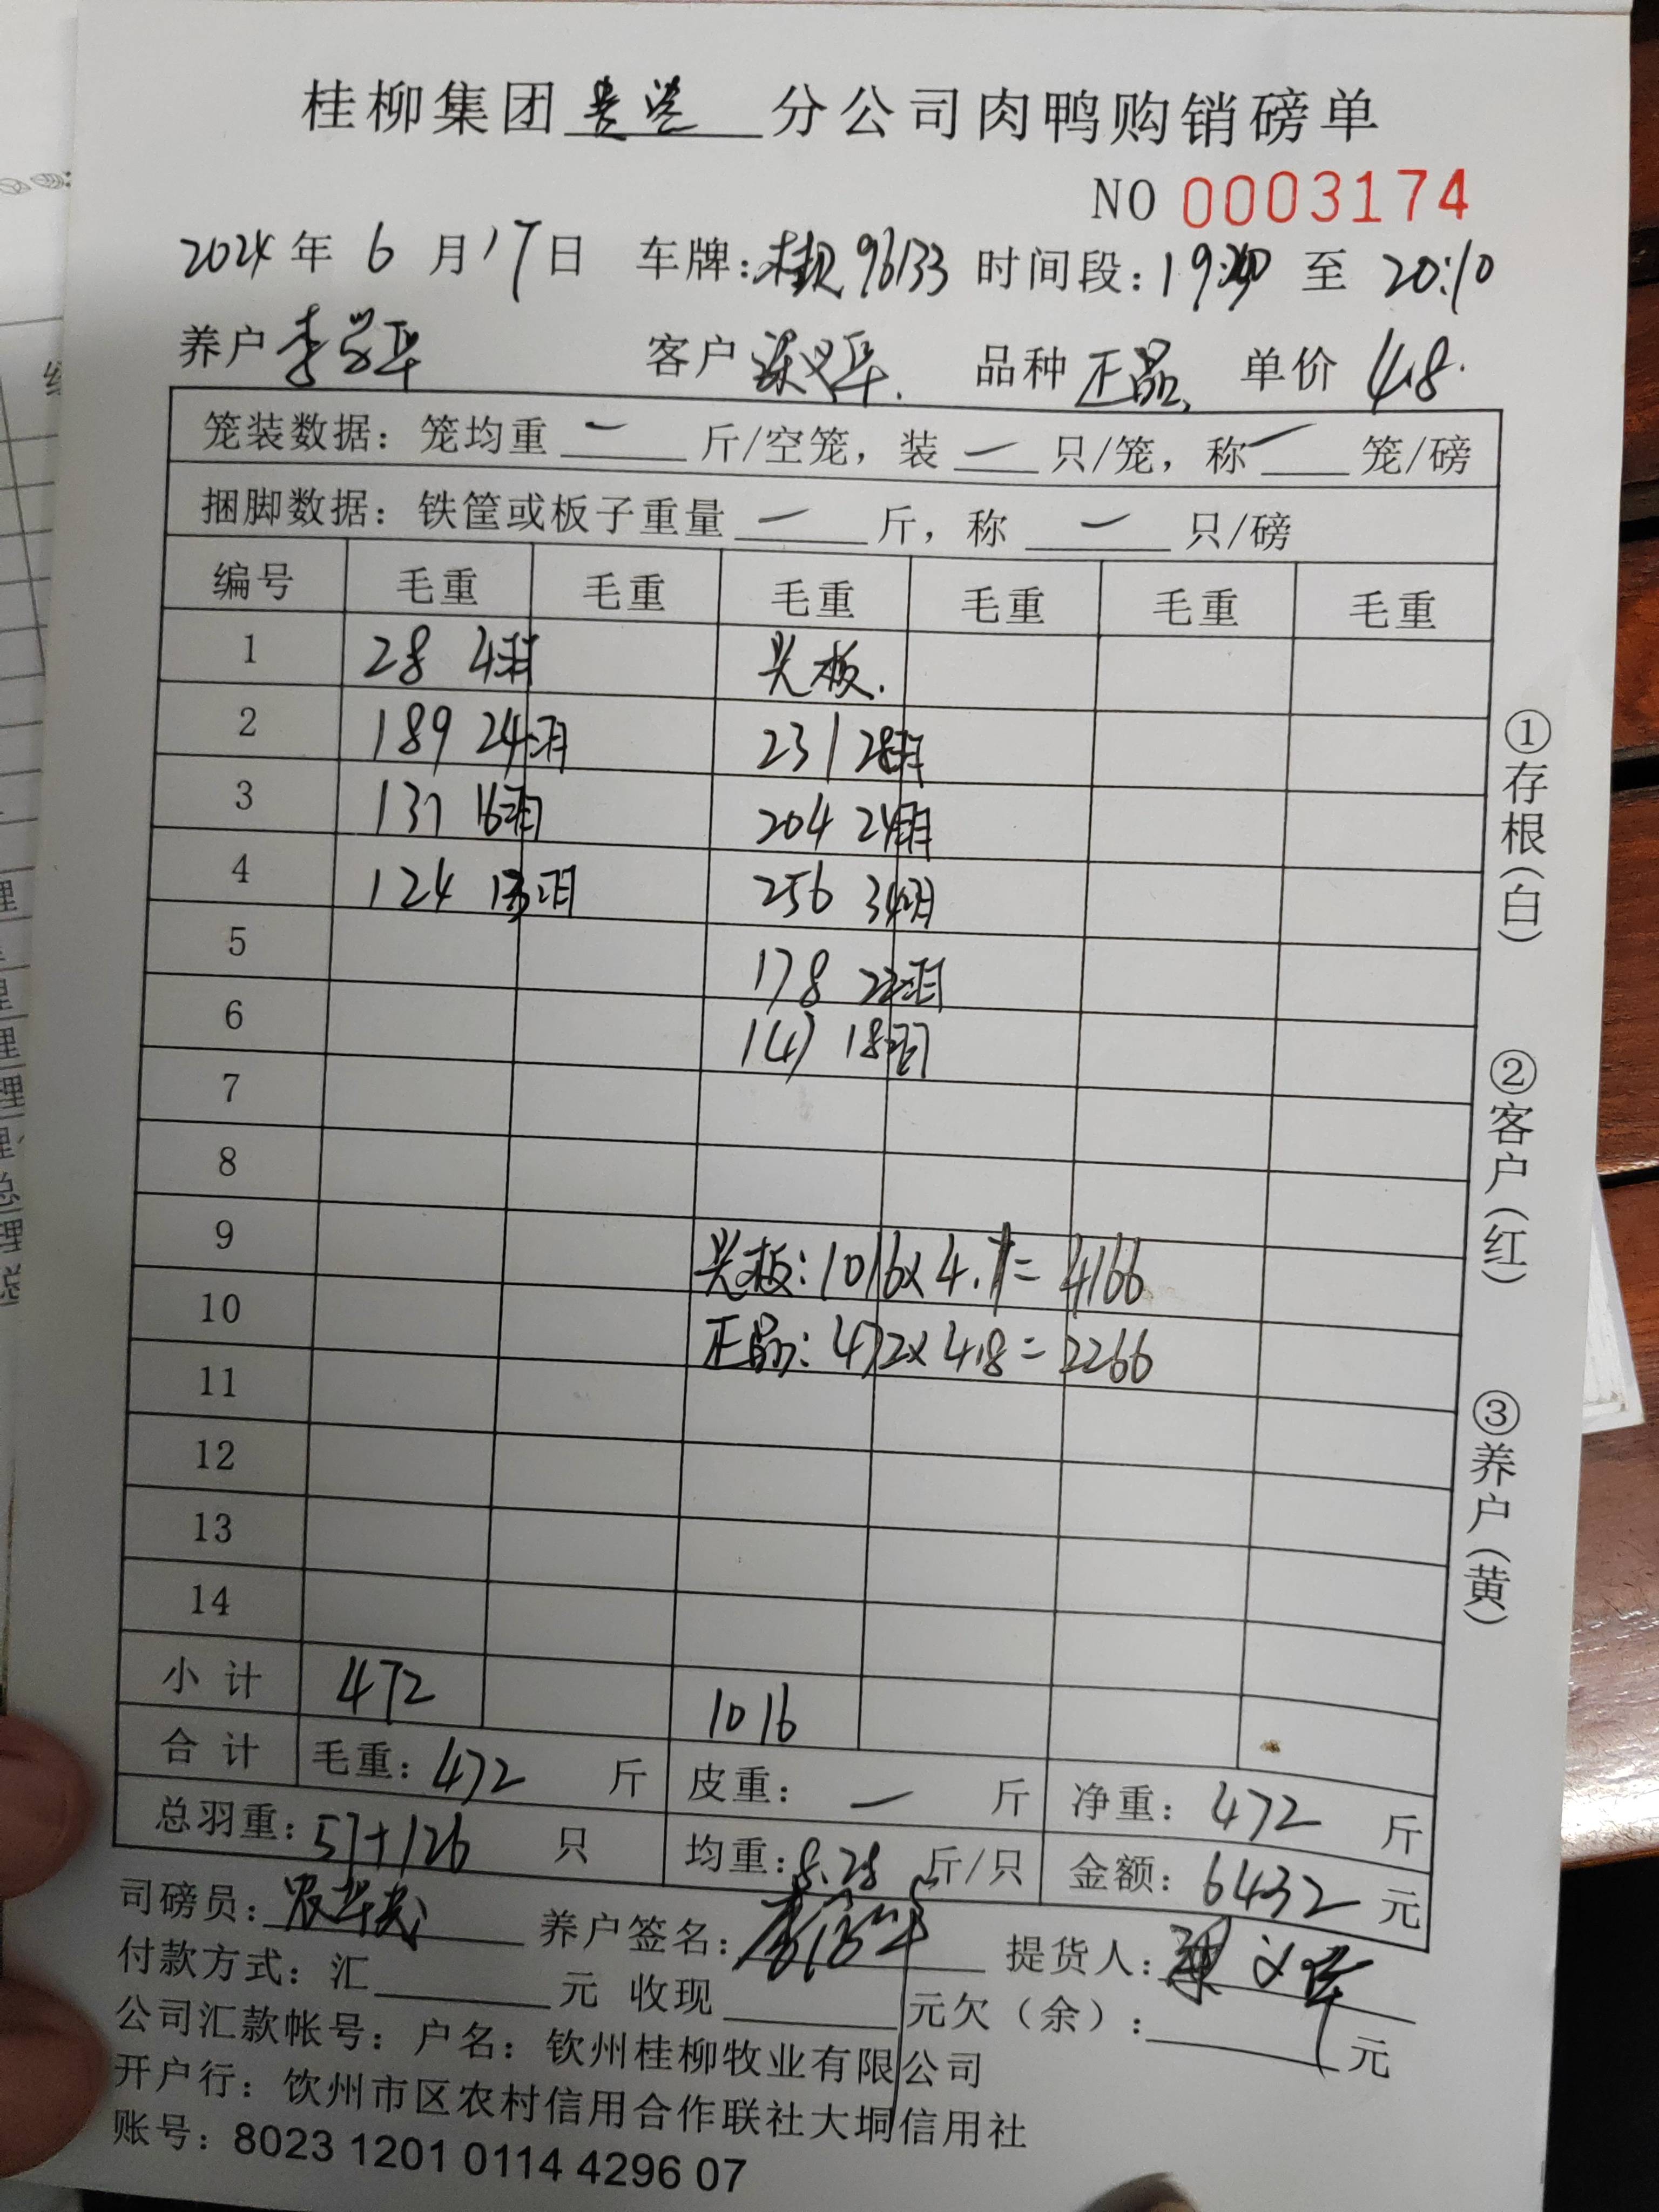 桂柳集团贵港分公司肉鸭购销磅单
NO 0003174
2024年6月17日 车牌:桂R 96133 时间段:19:40至20:10
养户李 华 客户梁义华. 品种正品 单价4.8.
笼装数据:笼均重一斤/空笼,装一只/笼,称一笼/磅
捆脚数据:铁筐或板子重量一斤,称一只/磅
编号 毛重 毛重 毛重 毛重 毛重 毛重
1 28 4羽 板.
2 189 24羽 231 28羽
3 131 16羽 204 24羽
4 124 13羽 256 34羽
5 178 22羽
6 147 18羽
7
8
9 板:1016x4.1=4166
10 正品:472x4.8=2266
11
12
13
14
小计 472 1016
合计 毛重:472斤 皮重:一斤 净重:472斤
总羽重:57+126只 均重:8.28斤/只 金额:6432元
司磅员: 养户签名: 提货人:梁义华
付款方式:汇元 收现元欠(余):元
公司汇款帐号:户名:钦州桂柳牧业有限公司
开户行:饮州市区农村信用合作联社大垌信用社
账号:8023 1201 0114 4296 07
①存根(白)
②客户(红)
③养户(黄)